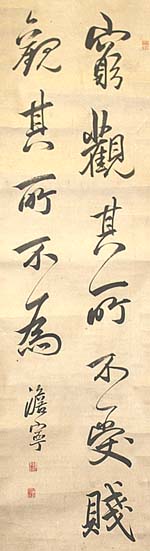 窮觀其所不受賤
觀其所不為
澹寧